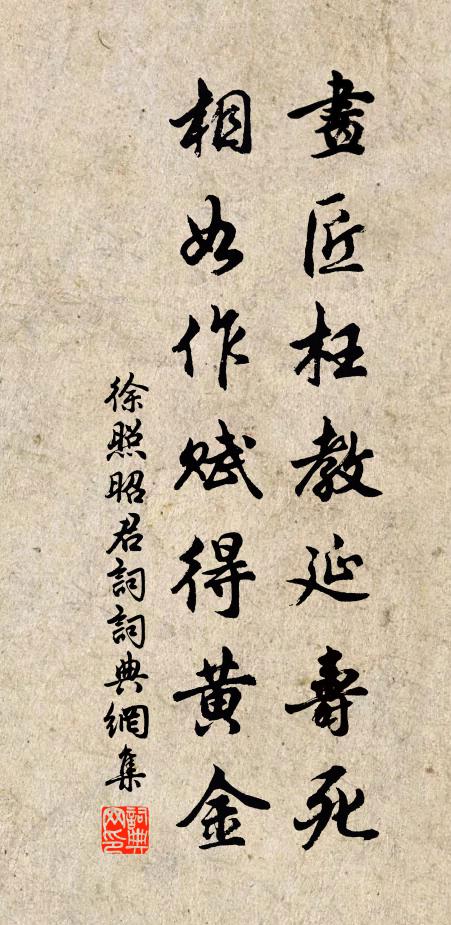 畫匠枉教延壽死
相如作賦得黃金
徐照昭君詞詞典網集
詞典网印